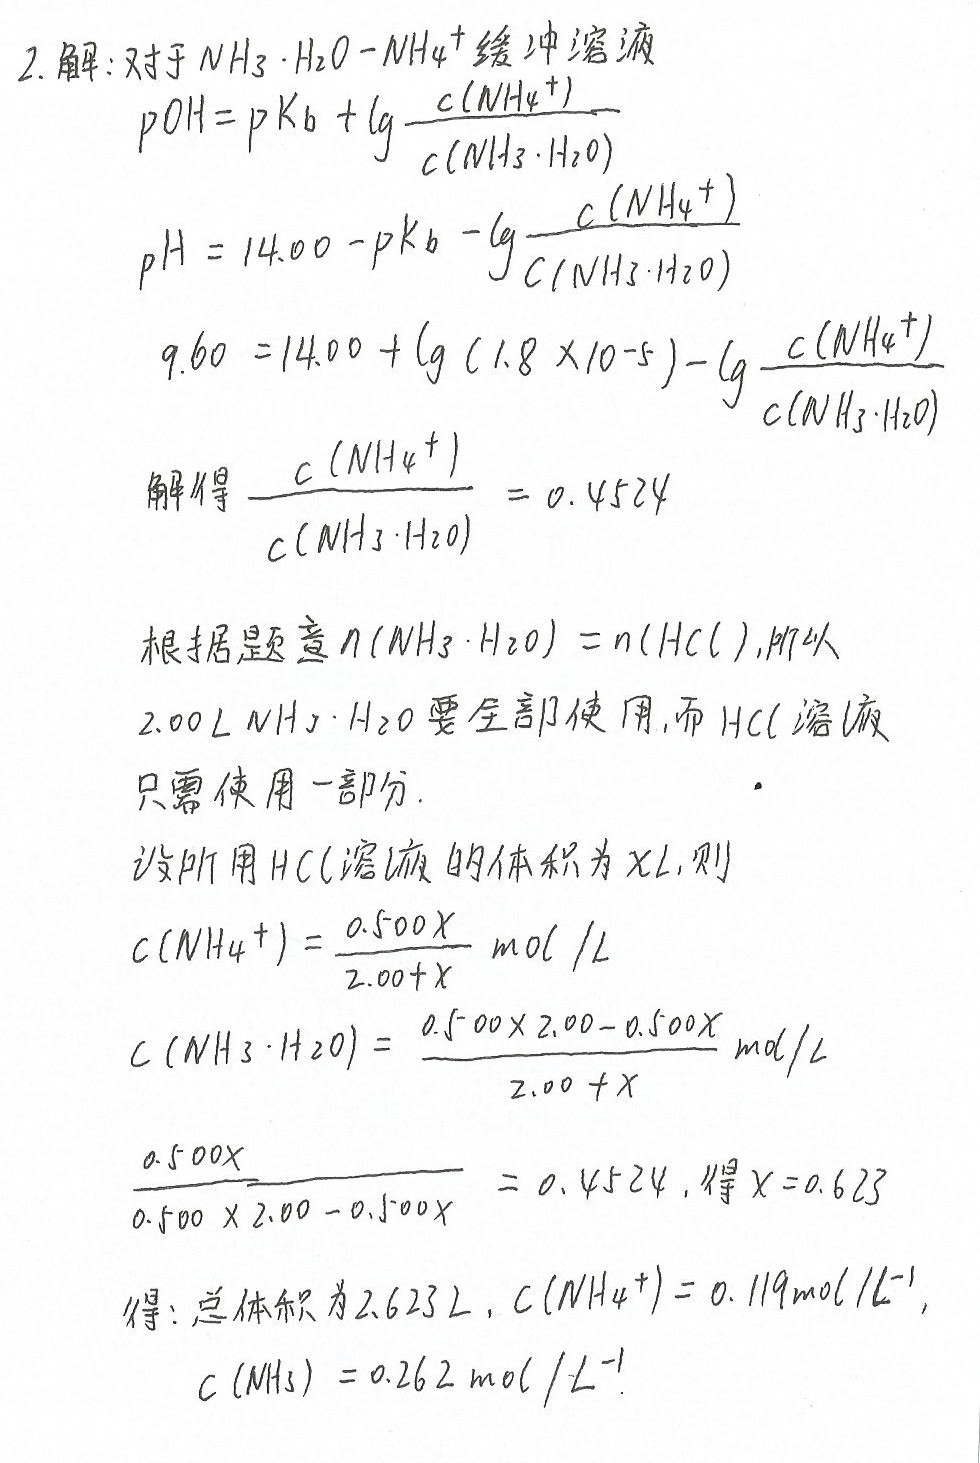 2. 解:对于NH3·H2O-NH4⁺缓冲溶液
pOH = pKb + lg c(NH4⁺)/c(NH3·H2O)
pH = 14.00 - pKb - lg c(NH4⁺)/c(NH3·H2O)
9.60 = 14.00 + lg(1.8×10⁻⁵) - lg c(NH4⁺)/c(NH3·H2O)
解得 c(NH4⁺)/c(NH3·H2O) = 0.4524
根据题意n(NH3·H2O) = n(HCl),所以
2.00L NH3·H2O要全部使用,而HCl溶液
只需使用一部分.
设所用HCl溶液的体积为xL,则
c(NH4⁺) = 0.500x/2.00+x mol/L
c(NH3·H2O) = 0.500×2.00-0.500x/2.00+x mol/L
0.500x/0.500×2.00-0.500x = 0.4524,得x=0.623
得:总体积为2.623L,c(NH4⁺) = 0.119mol/L⁻¹,
c(NH3) = 0.262mol/L⁻¹.